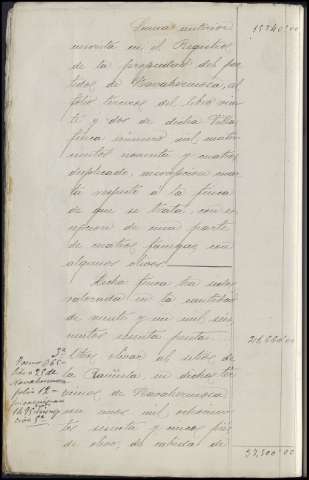 Suma anterior 15340'00
inscrita en el Registro
de la propiedad del par
tido de Navahermosa, al
folio tercero del libro vein
te y dos de dicha Villa
finca número mil cuatro
cientos noventa y cuatro
duplicado, inscripcion cuar
ta respecto á la finca
de que se trata, con es
cepcion de una parte
de cuatro fanegas con
algunos olivos.
Dicha finca ha sido
valorada en la cantidad
de veinte y un mil seis
cientos sesenta pesetas
3ª Otro olivar al sitio de
la en dicho tér
mino de Navahermosa
con unos mil ochocien
tos sesenta y cinco pies
de olivo, de cabida de
Tomo
libro 23 de
Navahermosa
folio
inscripcion